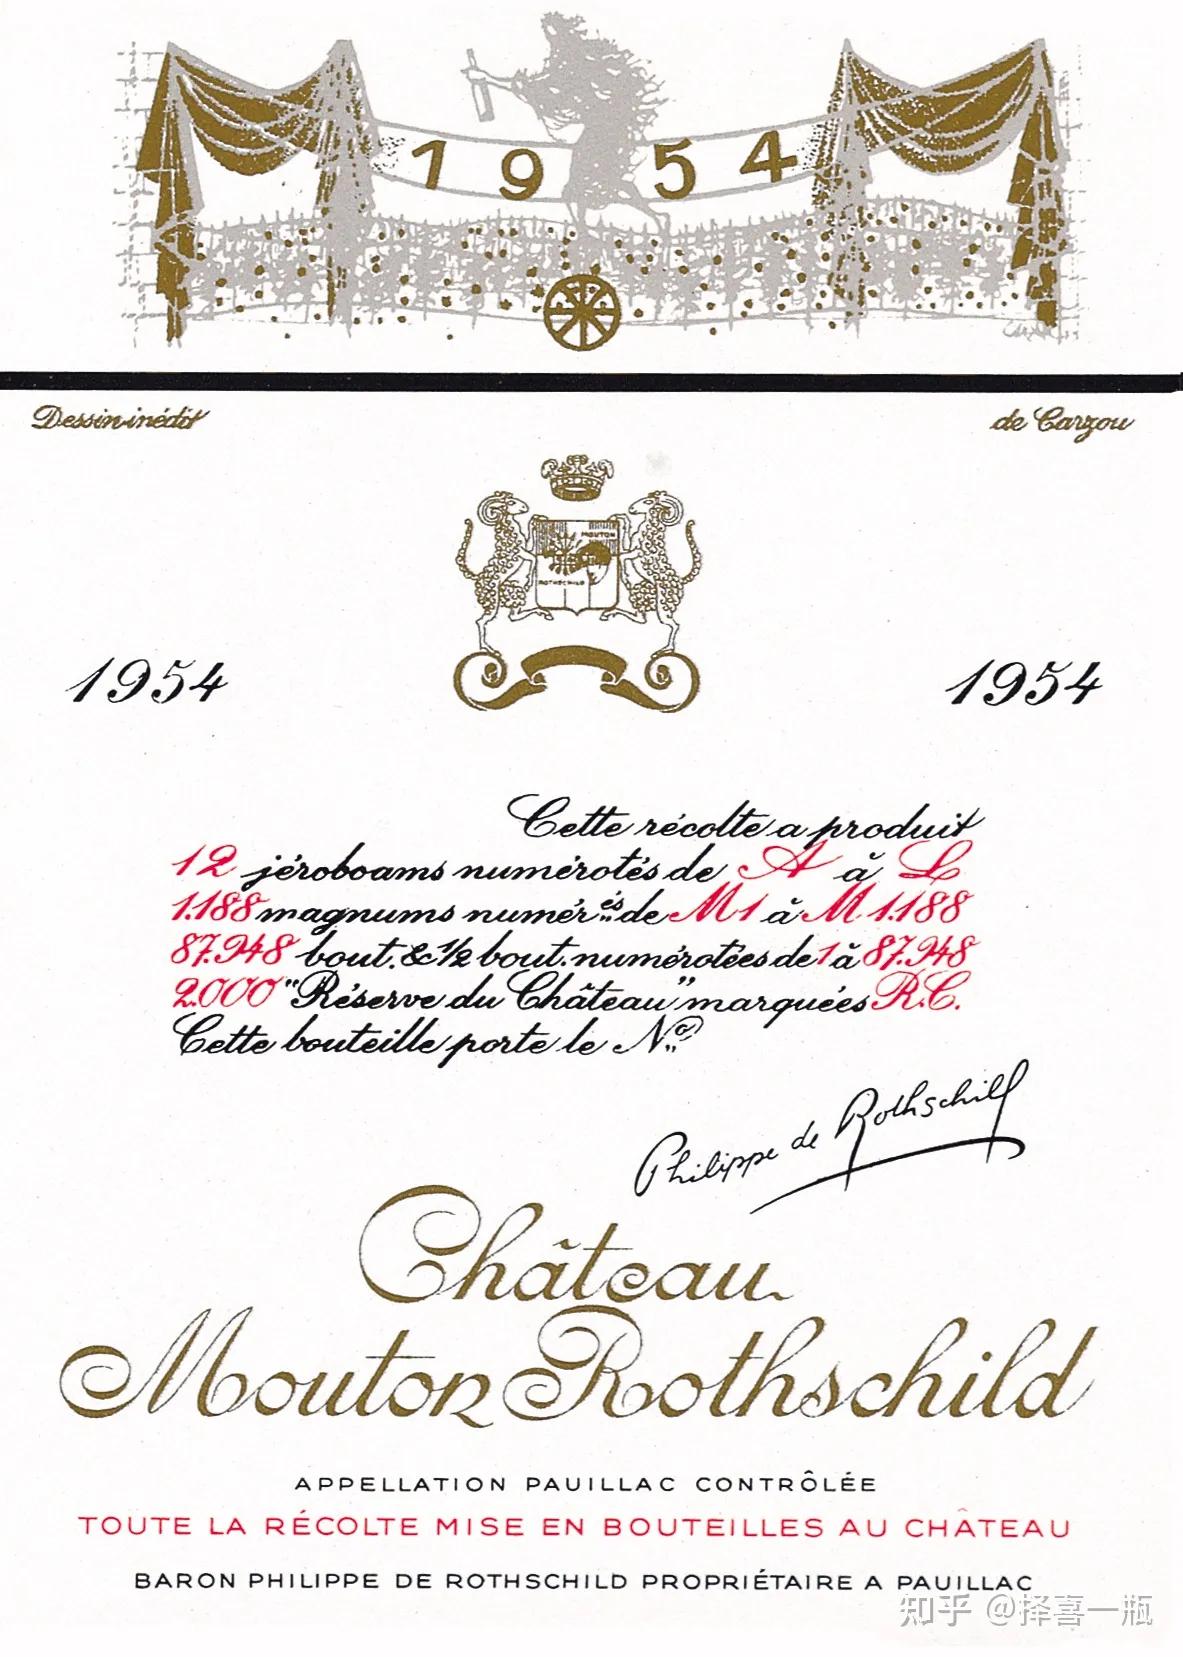 1954
Dessin inédit
de Carzou
MOUTON
ROTHSCHILD
1954
1954
Cette récolte a produit
12 jéroboams numérotés de A à L
1.188 magnums numér.és de M1 à M 1.188
87.948 bout. & 1/2 bout. numérotées de 1 à 87.948
2.000 "Réserve du Château" marquées R.C.
Cette bouteille porte le No
Philippe de Rothschild
Château
Mouton Rothschild
APPELLATION PAUILLAC CONTRÔLÉE
TOUTE LA RÉCOLTE MISE EN BOUTEILLES AU CHÂTEAU
BARON PHILIPPE DE ROTHSCHILD PROPRIÉTAIRE A PAUILLAC
知乎 @择喜一瓶